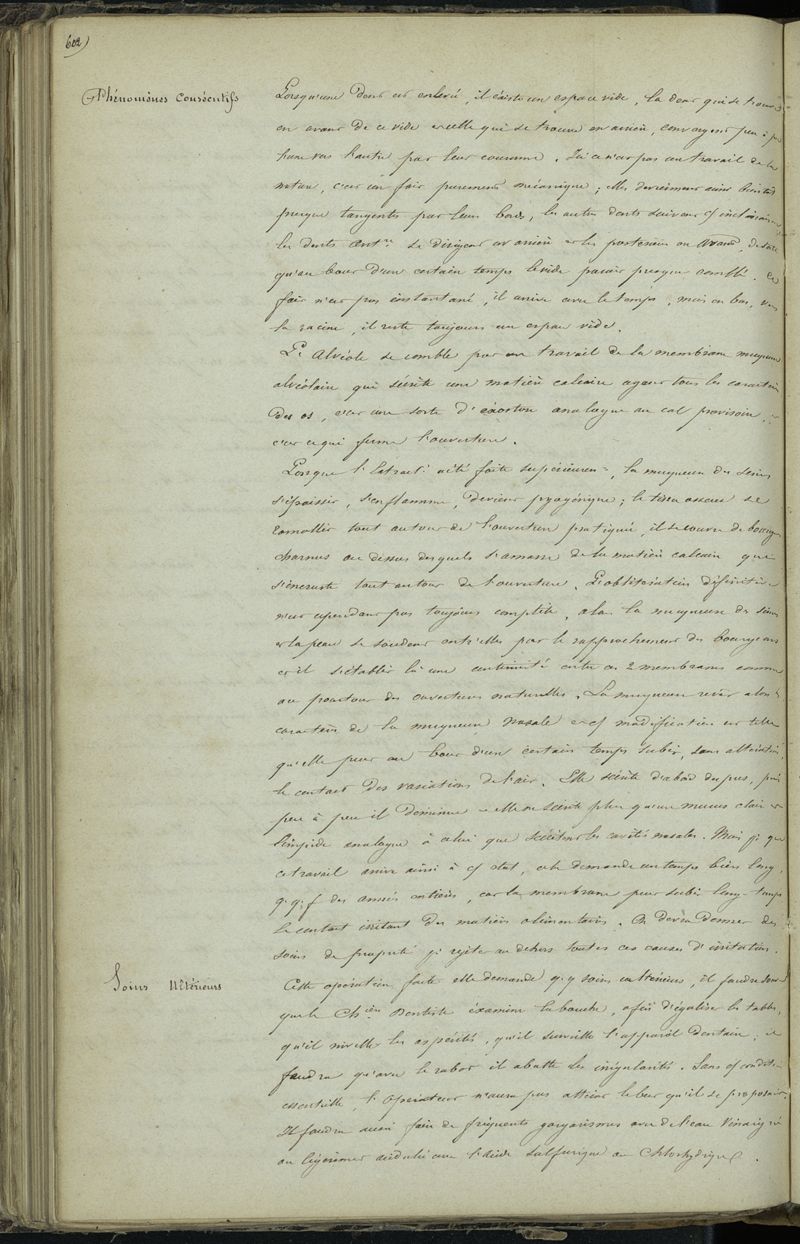 602)
Phénomènes Consécutifs
Lorsqu'une dent est enlevée, il existe un espace vide, la dent qui se trouve
en avant de ce vide et celle qui se trouve en arrière, convergent peu à peu
l'une vers l'autre par leur couronne. Ici ce n'est pas un travail de la
nature, c'est un fait purement mécanique; elles deviennent ainsi bientôt
presque tangentes par leurs bords, les autres dents suivent cf inclinaison
les dents antres se dirigent en arrière et les postérieures en avant, de sorte
qu'au bout d'un certain temps le vide parait presque comblé. Ce
fait n'est pas instantané, il arrive avec le temps, mais en bas, vers
la racine, il reste toujours un espace vide.
L'Alvéole se comble par un travail de la membrane muqueuse
alvéolaire qui sécrète une matière calcaire ayant tous les caractères
des os, c'est une sorte d'éxostose analogue au cal provisoire,
c'est ce qui ferme l'ouverture.
Lorsque l'Extract. a été faite supérieuremt, la muqueuse des sinus
s'épaissit, s'enflamme, devient pyogénique; le tissu osseux se
ramollit tout autour de l'ouverture pratiquée, il se couvre de bourgeons
charnus au dessus desquels s'amasse de la matière calcaire qui
s'incruste tout autour de l'ouverture. L'oblitération définitive
n'est cependant pas toujours complète, alors la muqueuse du sinus
et la peau se soudent entr'elles par le rapprochement des bourgeons
et il s'établit là une continuité entre ces 2 membranes comme
au pourtour des ouvertures naturelles. La muqueuse revêt alors les
caractères de la muqueuse nasale et cf modification est telle
qu'elle peut au bout d'un certain temps subir, sans altération,
le contact des variations de l'air. Elle sécrète d'abord du pus, puis
peu à peu il diminue et elle ne sécrète plus qu'un mucus clair et
limpide analogue à celui que sécrètent les cavités nasales. Mais pr que
ce travail arrive ainsi à cf état, cela demande un temps bien long,
qqf des années entières, car la membrane peut subir longtemps
le contact irritant des matières alimentaires. On devra donner des
soins de propreté pr rejeter au dehors toutes ces causes d'irritation.
Soins Ultérieurs
Cette opération faite elle demande qq soins ultérieurs, il faudra
que le Chien Dentiste examine la bouche, afin d'égaliser les tables,
qu'il nivelle les aspérités, qu'il surveille l'appareil dentaire, il
faudra qu'avec le rabot il abatte les irrégularités. Sans cf condition
essentielle, l'Opérateur n'aura pas atteint le but qu'il se proposait.
Il faudra aussi faire de fréquents gargarismes avec de l'eau vinaigrée
ou légèrement acidulée avec l'acide sulfurique ou Chlorhydrique.